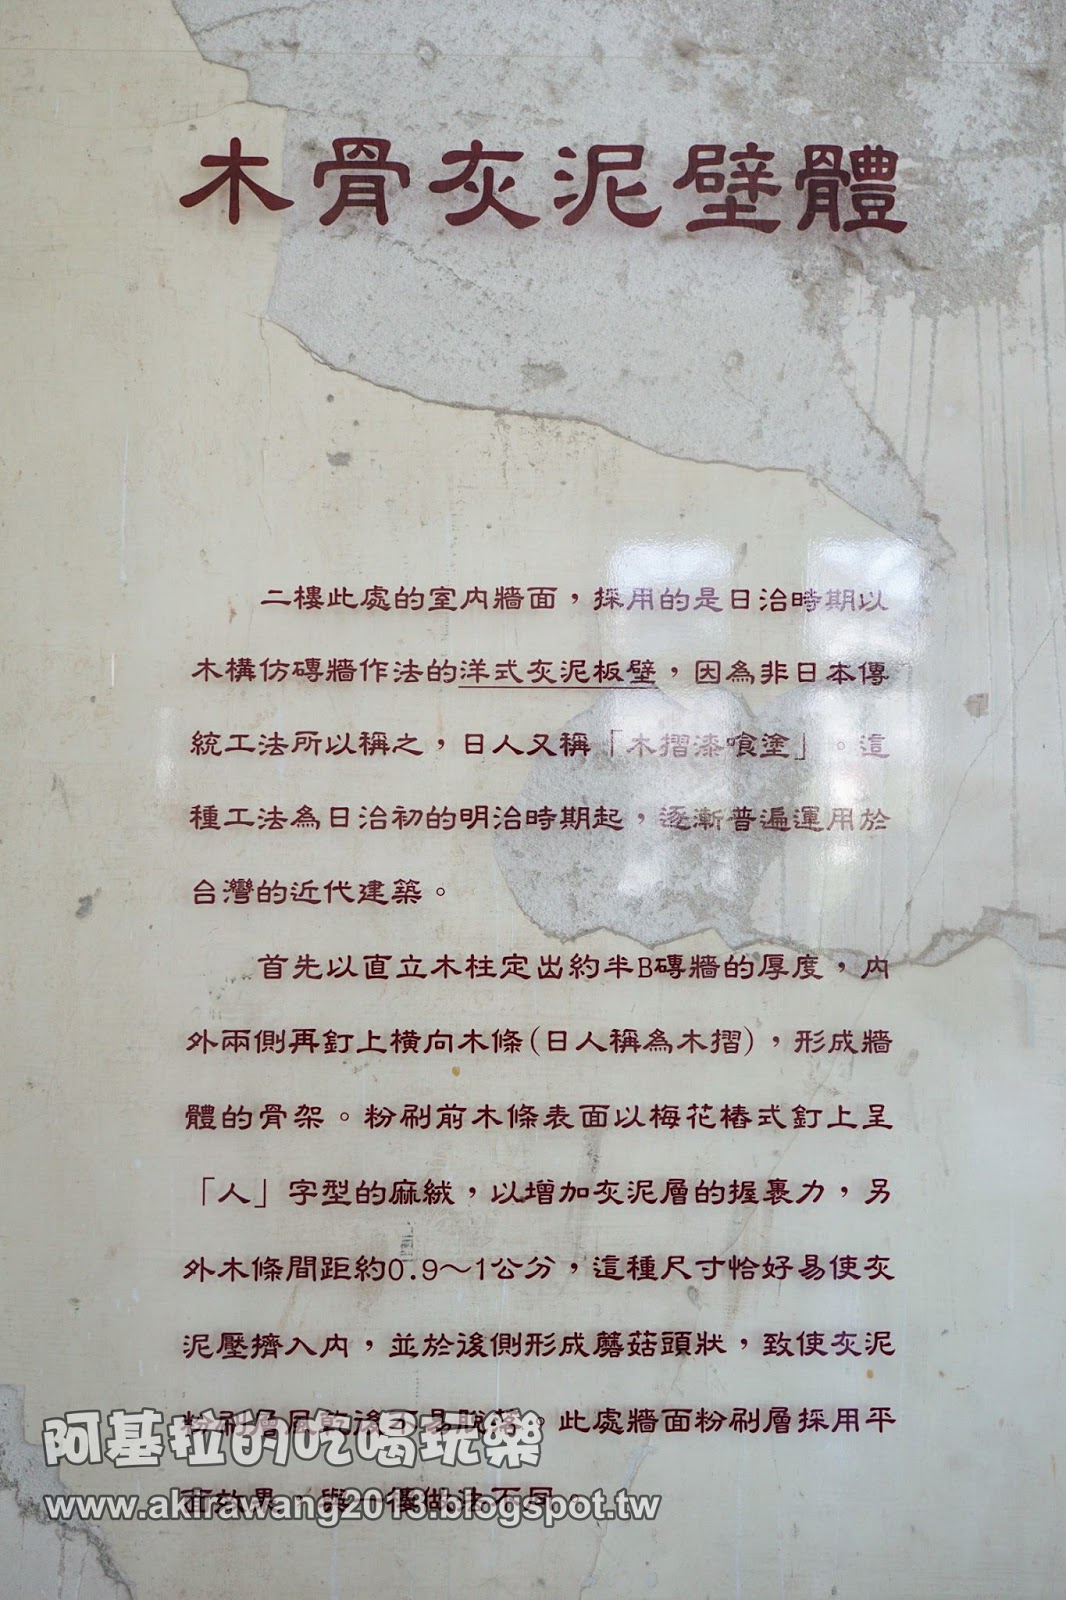 木骨灰泥壁體
二樓此處的室內牆面，採用的是日治時期以
木構仿磚牆作法的洋式灰泥板壁，因為非日本傳
統工法所以稱之，日人又稱「木摺漆喰塗」。這
種工法為日治初的明治時期起，逐漸普遍運用於
台灣的近代建築。
首先以直立木柱定出約半B磚牆的厚度，內
外兩側再釘上橫向木條(日人稱為木摺)，形成牆
體的骨架。粉刷前木條表面以梅花樁式釘上呈
「人」字型的麻絨，以增加灰泥層的握裹力，另
外木條間距約0.9～1公分，這種尺寸恰好易使灰
泥壓擠入內，並於後側形成蘑菇頭狀，致使灰泥
粉刷層風乾後不易脫落。此處牆面粉刷層採用平
做法不同。
阿基拉的吃喝玩樂
www.akirawang2013.blogspot.tw